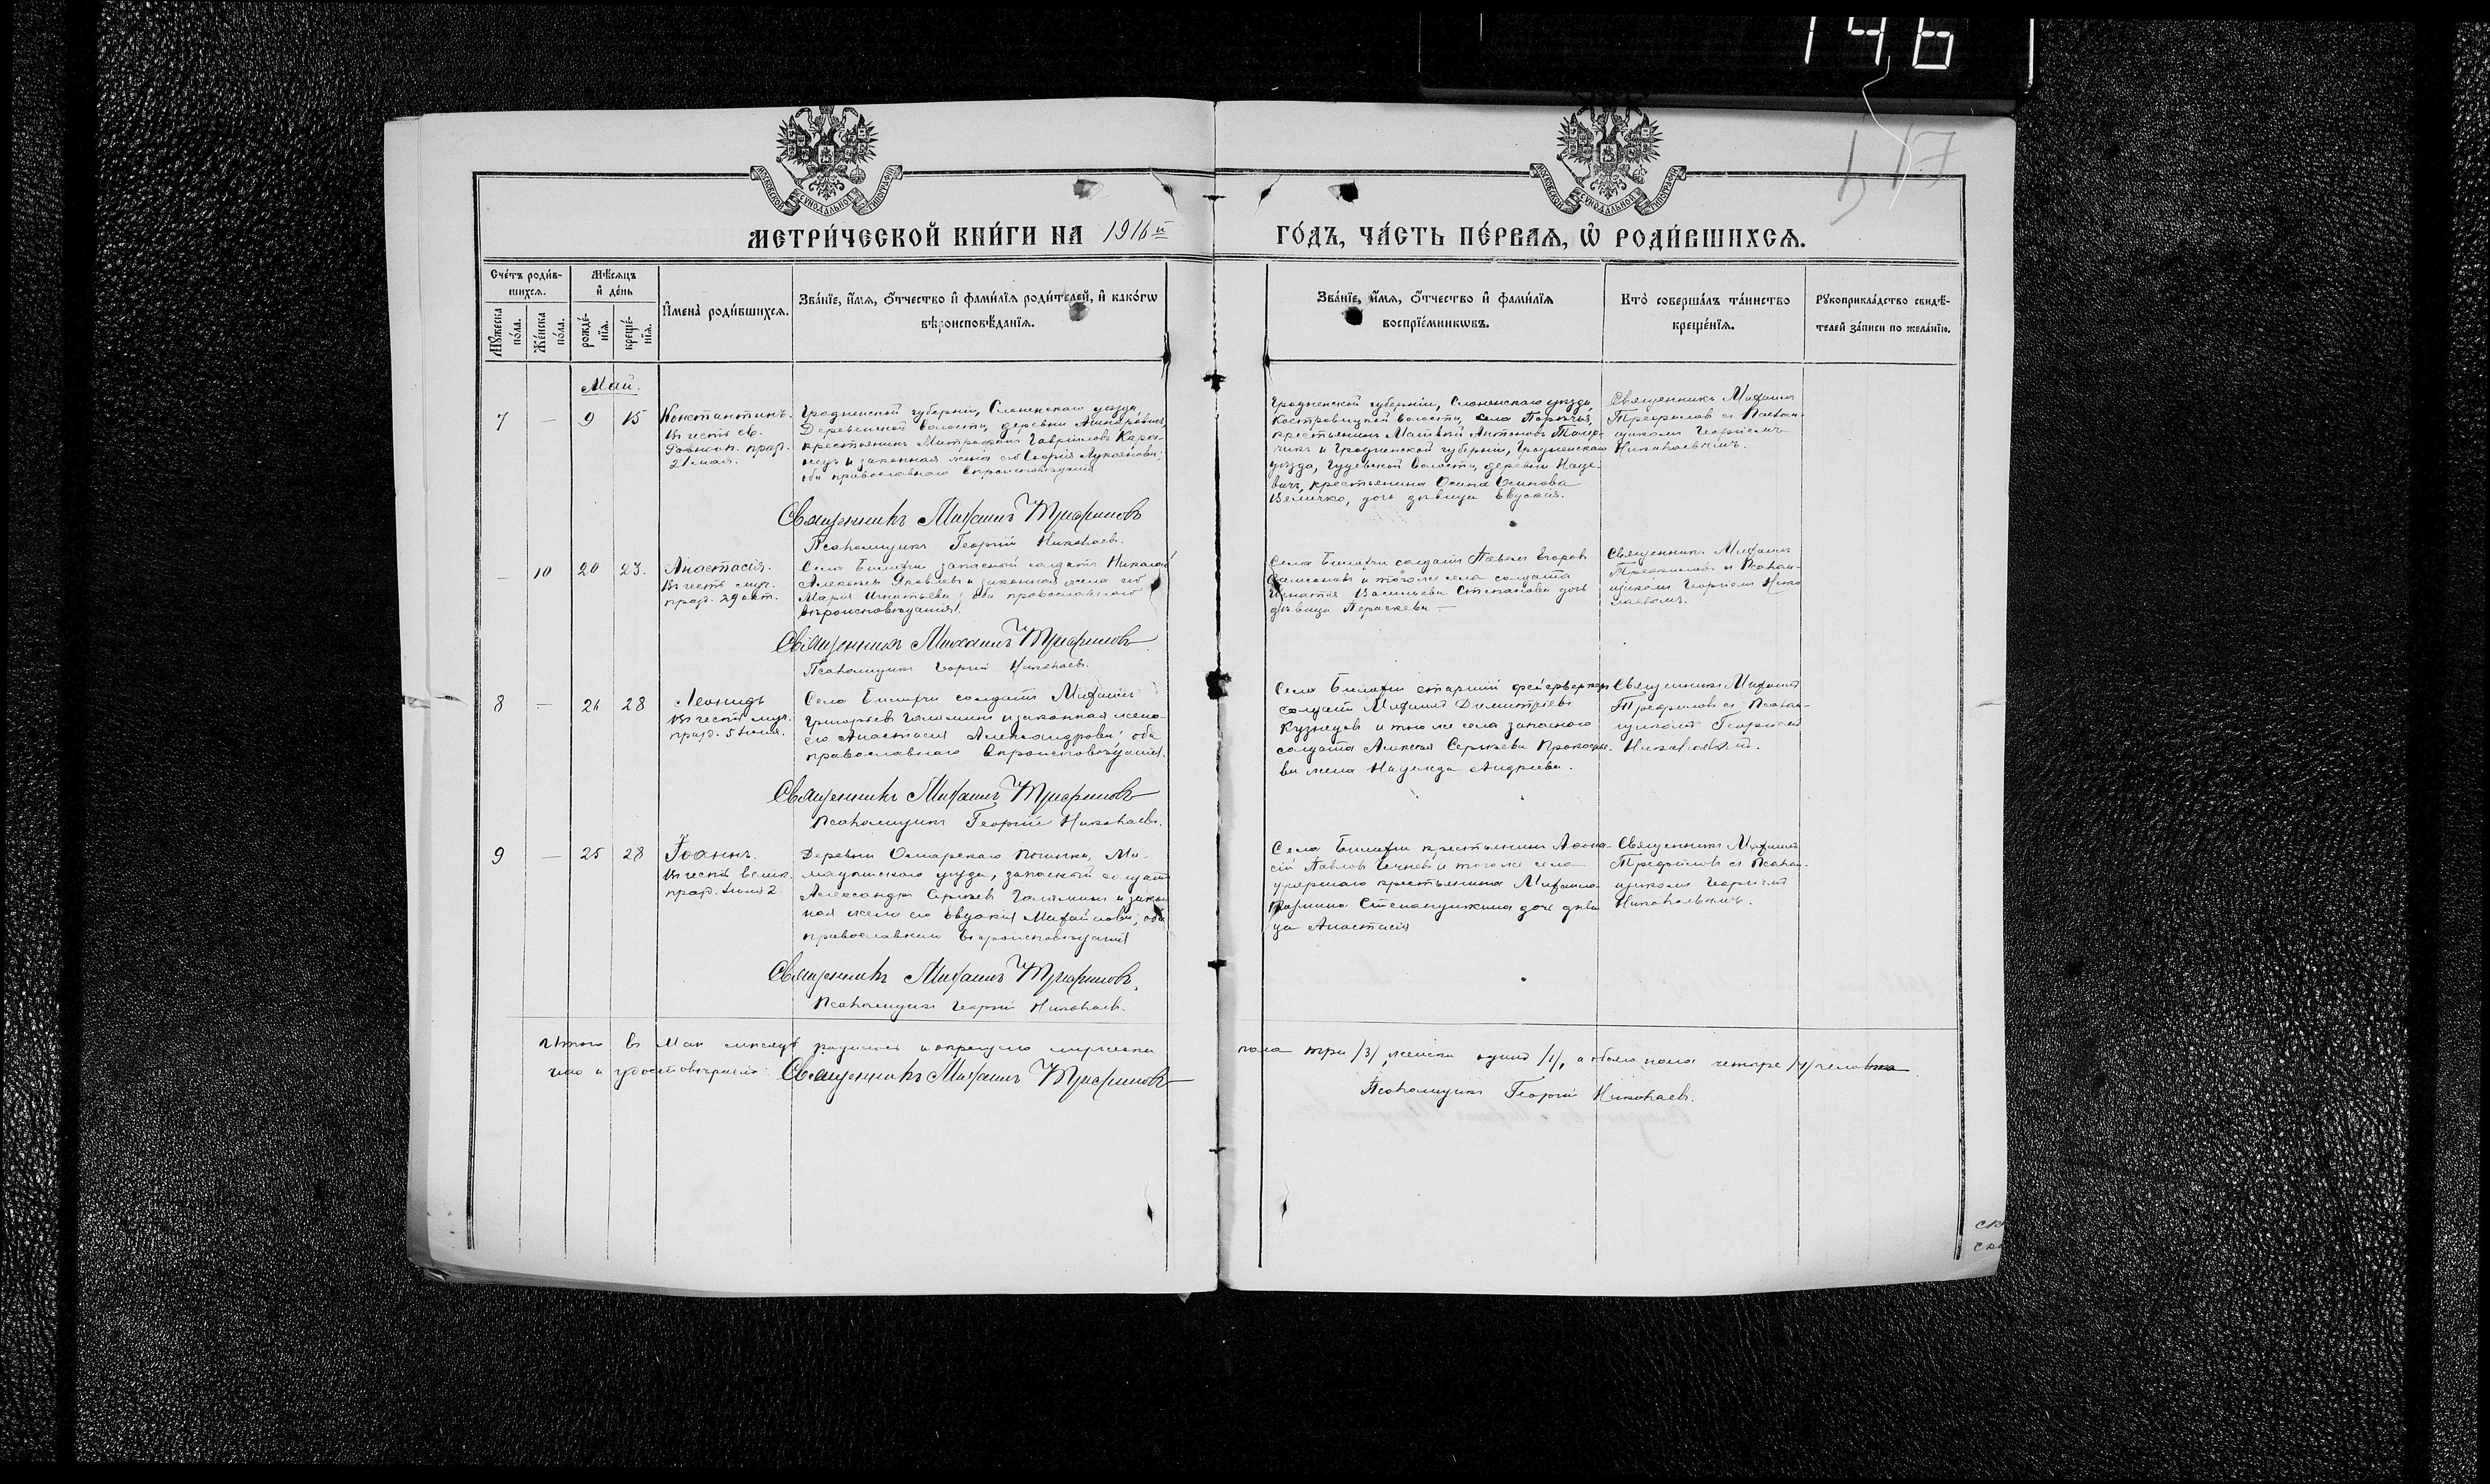 146
147
МОСКОВСКОЙ СУНОДАЛЬНОЙ ТИПОГРАФІИ
МОСКОВСКОЙ СУНОДАЛЬНОЙ ТИПОГРАФІИ
МЕТРИ́ЧЕСКОЙ КНИ́ГИ НА 1916й
ГО́ДЪ, ЧА́СТЬ ПЕ́РВАѦ, Ѡ҆ РОДИ́ВШИХСѦ.
Сче́тъ роди́в-
шихсѧ.
Мꙋ́жеска по́ла.
Же́нска по́ла.
Мѣ́сѧцъ
и҆ де́нь
рожде́-
нїѧ.
креще́-
нїѧ.
И҆мена̀ роди́вшихсѧ.
Зва́нїе, и҆́мѧ, ѻ҆́тчество и҆ фами́лїѧ роди́телей, и҆ како́гѡ
вѣроисповѣ́данїѧ.
Зва́нїе, и҆́мѧ, ѻ҆́тчество и҆ фами́лїѧ
воспрїе́мникѡвъ.
Кто̀ соверша́лъ та́инство
креще́нїѧ.
Рꙋкоприкла́дство свидѣ́-
телей за́писи по жела́нїю.
Май.
7 — 9 15
Константинъ.
Въ честь св.
Равноап. празд.
21 мая.
Гродненской губерніи, Слонимскаго уѣзда,
Деревенской волости, деревни
крестьянинъ Митрофанъ Гавріиловъ
и законная жена его Софія Лукьянова;
оба православнаго вѣроисповѣданія
Священникъ Михаилъ Трифиловъ
Псаломщикъ Георгій Николаевъ.
Гродненской губерніи, Слонимскаго уѣзда,
Костровицкой волости, села Порѣчья,
крестьянинъ Антоновъ
и Гродненской губерніи, Гродненскаго
уѣзда, волости, деревни
крестьянина Осипа Осипова
Величко, дочь дѣвица Евдокія.
Священникъ Михаилъ
Трифиловъ съ Псалом-
щикомъ Георгіемъ
Николаевымъ.
— 10 20 23.
Анастасія.
Въ честь муч.
празд. 29 окт.
Села запасной солдатъ Николай
Алексѣевъ Яковлевъ и законная жена его
Марія Игнатьева; оба православнаго
вѣроисповѣданія.
Священникъ Михаилъ Трифиловъ
Псаломщикъ Георгій Николаевъ.
Села солдатъ Павелъ Егоровъ
и того же села солдата
Игнатія Васильева Степанова дочь
дѣвица Параскева —
Священникъ Михаилъ
Трифиловъ съ Псалом-
щикомъ Георгіемъ Нико
лаевымъ.
8 — 26 28
Леонидъ
Въ честь муч.
празд. 5 Іюня.
Села солдатъ Михаилъ
Григорьевъ Галяминъ и законная жена
его Анастасія Александрова; оба
православнаго вѣроисповѣданія.
Священникъ Михаилъ Трифиловъ
Псаломщикъ Георгій Николаевъ.
Села старшій фейерверкеръ
солдатъ Михаилъ Димитріевъ
Кузнецовъ и того же села запаснаго
солдата Алексѣя Сергѣева Прокофье-
ва жена Надежда Андреева.
Священникъ Михаилъ
Трифиловъ съ Псалом-
щикомъ Георгіемъ
Николаевымъ.
9 — 25 28
Іоаннъ.
Въ честь велик.
празд. Іюня 2.
Деревни Починка, Ма-
мадышскаго уѣзда, запасной солдатъ
Александръ Сергѣевъ Галяминъ и закон
ная жена его Евдокія Михайлова; оба
православнаго вѣроисповѣданія
Священникъ Михаилъ Трифиловъ.
Псаломщикъ Георгій Николаевъ.
Села крестьянинъ Афана-
сій Павловъ и того же села
умершаго крестьянина Михаила
дочь дѣви
ца Анастасія
Священникъ Михаилъ
Трифиловъ съ Псалом-
щикомъ Георгіемъ
Николаевымъ.
Итого въ Маѣ мѣсяцѣ родилось и крещено мужеска
пола три /3/, женска одинъ /1/, а обоего пола четыре /4/ человѣка
что и удостовѣряемъ: Священникъ Михаилъ Трифиловъ
Псаломщикъ Георгій Николаевъ.